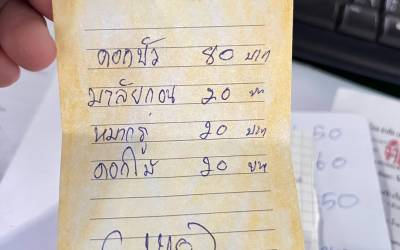 ดอกบัว 80 บาท
มาลัยกอน 20 บาท
หมากรู่ 20 บาท
ดอกไม้ 20 บาท
(140)
50
60
50